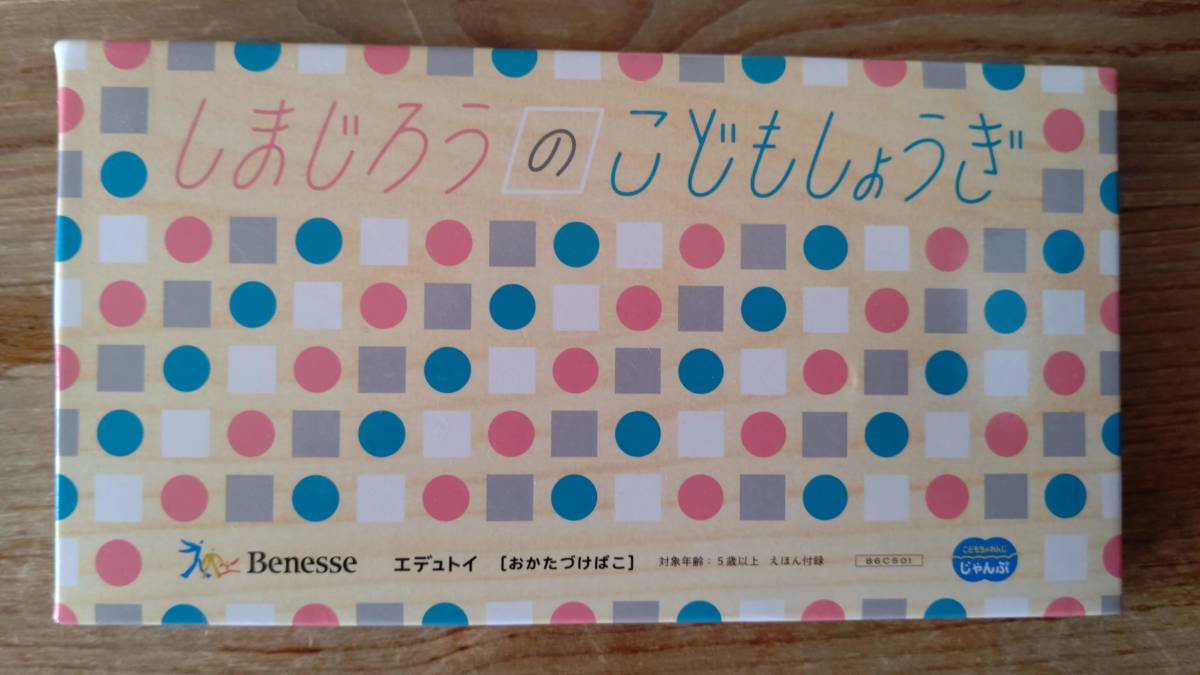 しまじろうのこどもしょうぎ
Benesse エデュトイ [おかたづけばこ] 対象年齢：5歳以上 えほん付録 86C501
こどもちゃれんじ
じゃんぷ